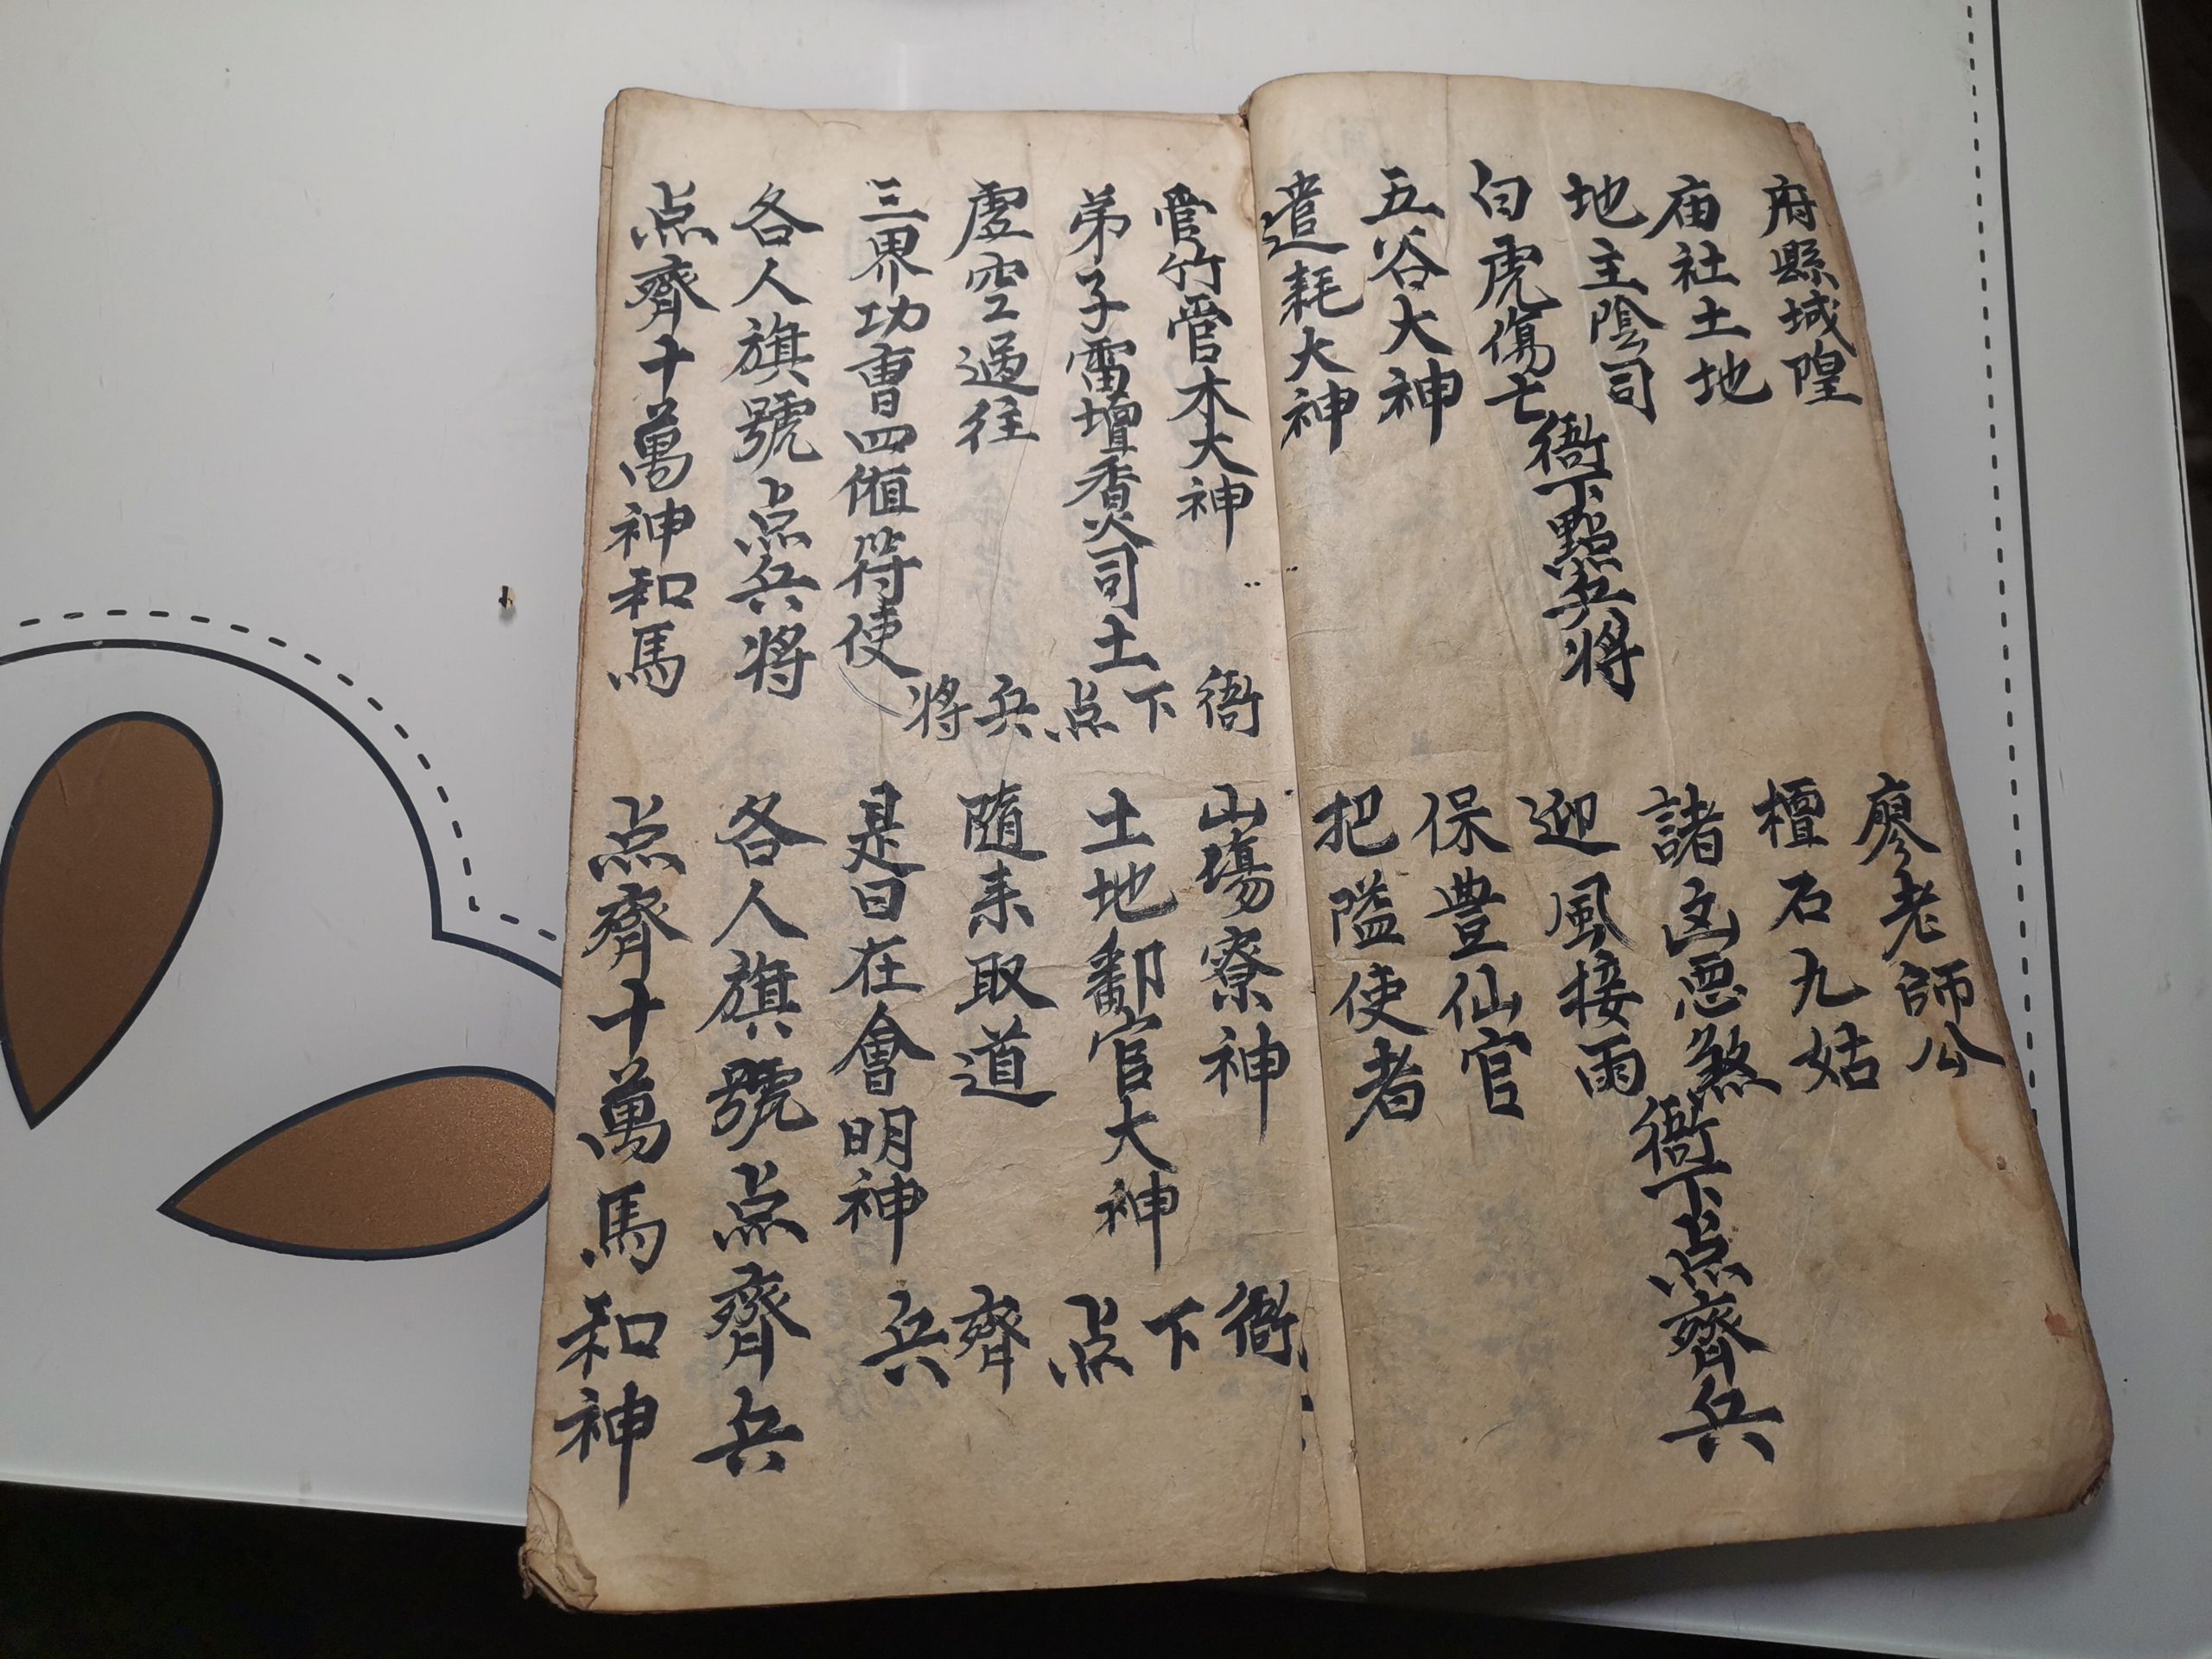 府縣城隍
庙社土地
地主陰司
白虎傷亡
衙下點兵將
五谷大神
遣耗大神
廖老師公
檀石九姑
諸凶惡煞
衙下点齊兵
迎風接雨
保豊仙官
把隘使者
管竹管木大神
弟子雷壇香火司土
虛空過往
三界功曹四値符使
衙下点兵將
各人旗號点兵將
点齊十萬神和馬
山場寮神
土地鄱官大神
随来取道
是日在會明神
衙下点齊兵
各人旗號点齊兵
点齊十萬馬和神